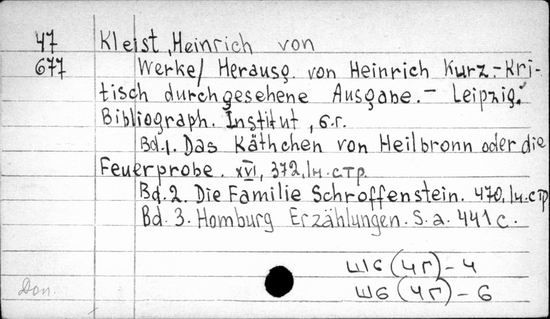 47 Kleist, Heinrich von
677 Werke/ Herausg. von Heinrich Kurz.-Kri-
tisch durchgesehene Ausgabe. - Leipzig:
Bibliograph. Institut, б.г.
Bd.1. Das Käthchen von Heilbronn oder die
Feuerprobe. XVI, 372, 1н.стр.
Bd.2. Die Familie Schroffenstein. 470, 1н.стр
Bd. 3. Homburg Erzählungen. S.a. 441 с.
Ш6(4Г)-4
Ш6(4Г)-6
Don.